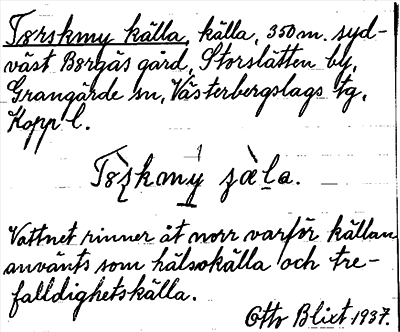 Torskmy källa, källa, 350 m. syd-
väst Borgås gård, Storslätten by,
Grangärde sn, Västerbergslags tg,
Kopp l.
Vattnet rinner åt norr varför källan
använts som hälsokälla och tre-
falldighetskälla.
Otto Blixt 1937.